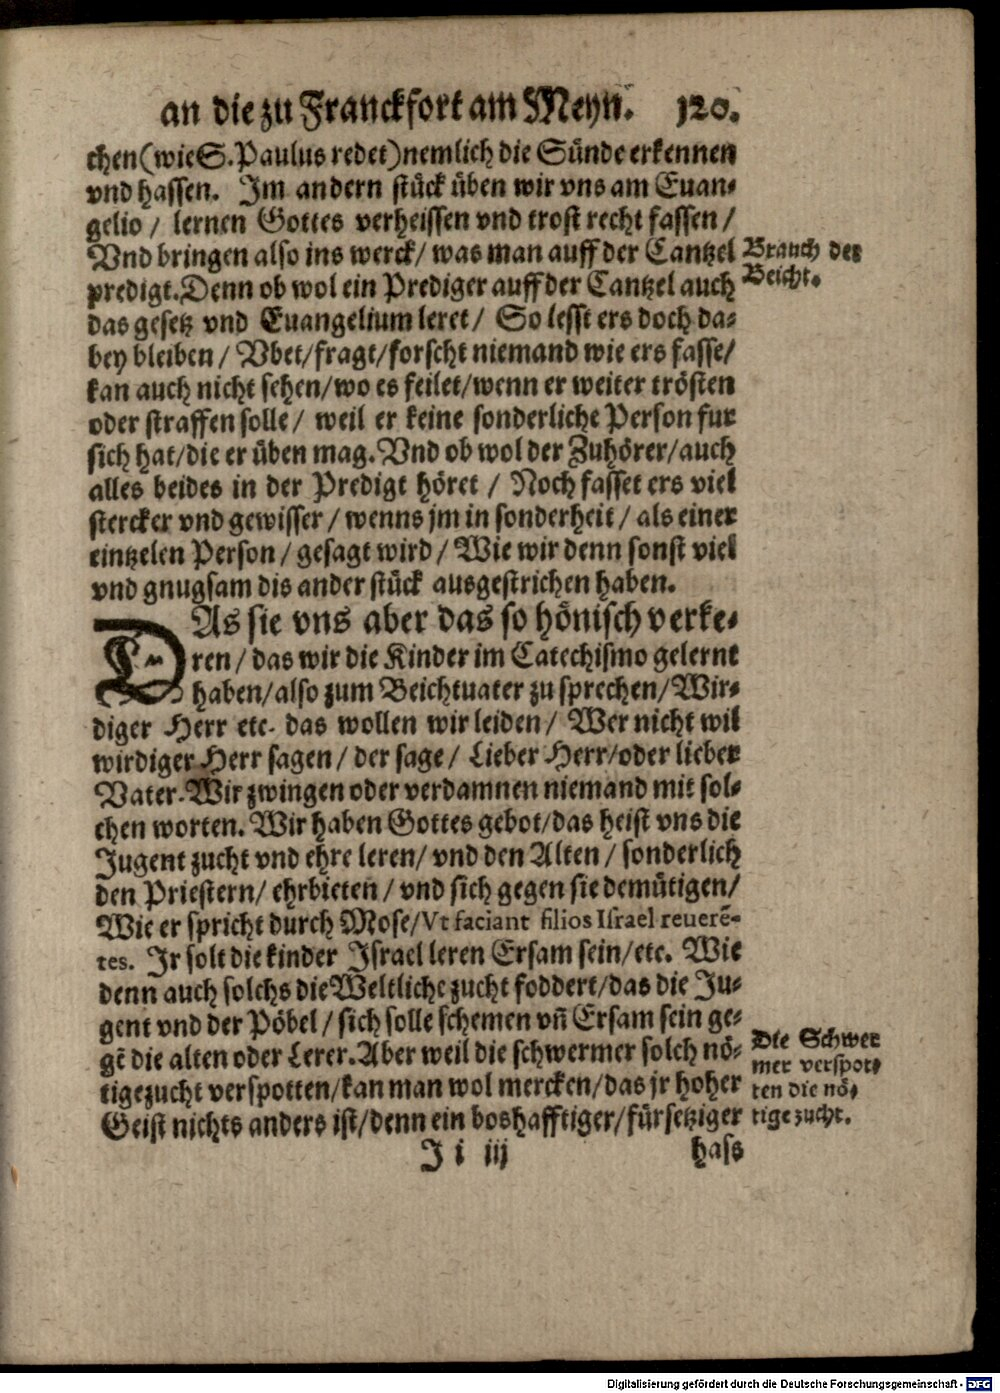 an die zu Franckfort am Meyn. 120.
chen (wie S. Paulus redet) nemlich die Sünde erkennen
vnd hassen. Im andern stück üben wir vns am Euan-
gelio / lernen Gottes verheissen vnd trost recht fassen /
Vnd bringen also ins werck / was man auff der Cantzel
Brauch der
Beicht.
predigt. Denn ob wol ein Prediger auff der Cantzel auch
das gesetz vnd Euangelium leret / So lesst ers doch da-
bey bleiben / Vbet / fragt / forscht niemand wie ers fasse /
kan auch nicht sehen / wo es feilet / wenn er weiter trösten
oder straffen solle / weil er keine sonderliche Person fur
sich hat / die er üben mag. Vnd ob wol der Zuhörer / auch
alles beides in der Predigt höret / Noch fasset ers viel
stercker vnd gewisser / wenns jm in sonderheit / als einer
eintzelen Person / gesagt wird / Wie wir denn sonst viel
vnd gnugsam dis ander stück ausgestrichen haben.
DAs sie vns aber das so hönisch verke-
ren / das wir die Kinder im Catechismo gelernt
haben / also zum Beichtuater zu sprechen / Wir-
diger Herr etc. das wollen wir leiden / Wer nicht wil
wirdiger Herr sagen / der sage / Lieber Herr / oder lieber
Vater. Wir zwingen oder verdamnen niemand mit sol-
chen worten. Wir haben Gottes gebot / das heist vns die
Jugent zucht vnd ehre leren / vnd den Alten / sonderlich
den Priestern / ehrbieten / vnd sich gegen sie demütigen /
Wie er spricht durch Mose / Vt faciant filios Israel reuerē-
tes. Ir solt die kinder Israel leren Ersam sein / etc. Wie
denn auch solchs die Weltliche zucht foddert / das die Ju-
gent vnd der Pöbel / sich solle schemen vñ Ersam sein ge-
gē die alten oder Lerer. Aber weil die schwermer solch nö-
tige zucht verspotten / kan man wol mercken / das jr hoher
Geist nichts anders ist / denn ein boshafftiger / fürsetziger
Die Schwer
mer verspot-
ten die nö-
tige zucht.
I i iij
hass
Digitalisierung gefördert durch die Deutsche Forschungsgemeinschaft - DFG